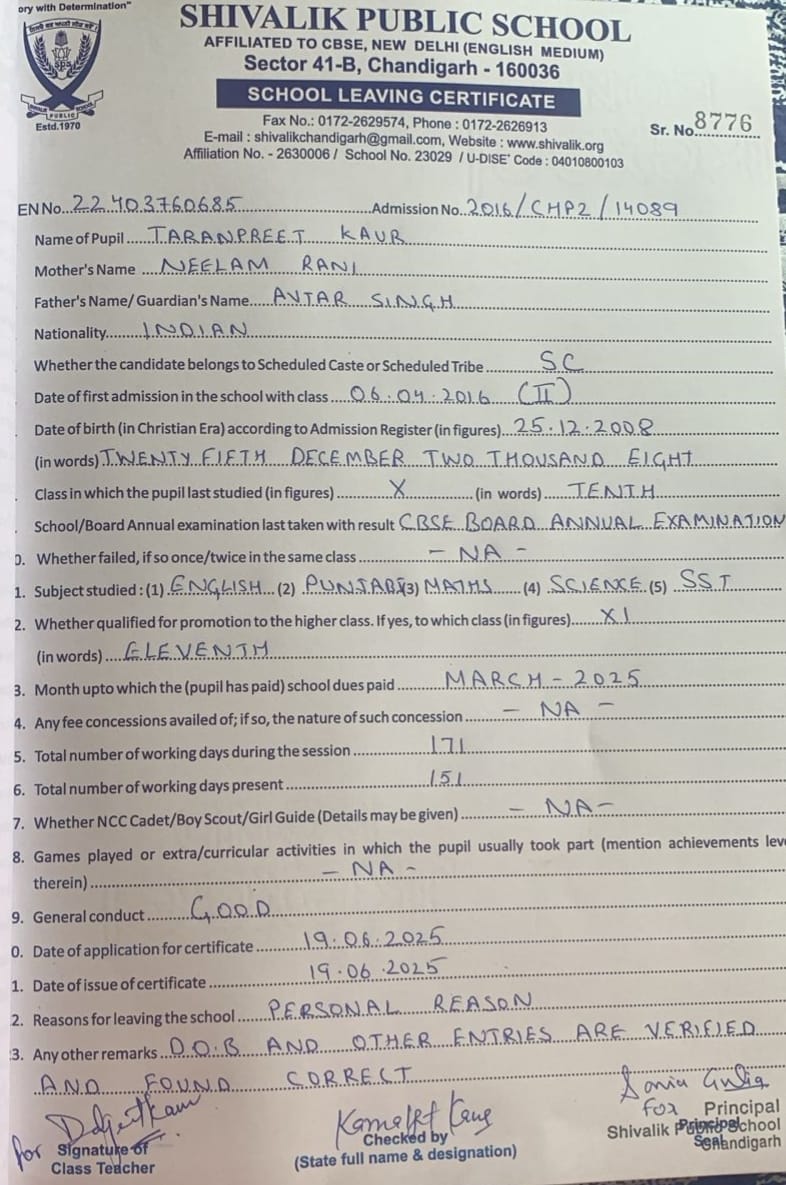 ory with Determination"
SHIVALIK PUBLIC SCHOOL
AFFILIATED TO CBSE, NEW DELHI (ENGLISH MEDIUM)
Sector 41-B, Chandigarh - 160036
SCHOOL LEAVING CERTIFICATE
Estd.1970
Fax No.: 0172-2629574, Phone : 0172-2626913
Sr. No. 8776
E-mail : shivalikchandigarh@gmail.com, Website : www.shivalik.org
Affiliation No. - 2630006 / School No. 23029 / U-DISE+ Code : 04010800103
EN No...22403760685...Admission No.2016/CHP2/14089
Name of Pupil....TARANPREET KAUR
Mother's Name ....NEELAM RANI
Father's Name/ Guardian's Name.....AVTAR SINGH
Nationality........INDIAN
Whether the candidate belongs to Scheduled Caste or Scheduled Tribe..........SC
Date of first admission in the school with class....06.04.2016 (II)
Date of birth (in Christian Era) according to Admission Register (in figures)...25.12.2008
(in words) TWENTY FIFTH DECEMBER TWO THOUSAND EIGHT
Class in which the pupil last studied (in figures)..........X..........(in words).....TENTH
School/Board Annual examination last taken with result CBSE BOARD ANNUAL EXAMINATION
0. Whether failed, if so once/twice in the same class.......... - NA -
1. Subject studied : (1) ENGLISH (2) PUNJABI (3) MATHS (4) SCIENCE (5) SST
2. Whether qualified for promotion to the higher class. If yes, to which class (in figures).......XI
(in words)....ELEVENTH
3. Month upto which the (pupil has paid) school dues paid..........MARCH - 2025
4. Any fee concessions availed of; if so, the nature of such concession........ - NA -
5. Total number of working days during the session..........171
6. Total number of working days present..........151
7. Whether NCC Cadet/Boy Scout/Girl Guide (Details may be given).......... - NA -
8. Games played or extra/curricular activities in which the pupil usually took part (mention achievements leve
therein).......... - NA -
9. General conduct.........GOOD
0. Date of application for certificate..........19.06.2025
1. Date of issue of certificate..........19.06.2025
2. Reasons for leaving the school......PERSONAL REASON
3. Any other remarks..D.O.B AND OTHER ENTRIES ARE VERIFIED
AND FOUND CORRECT
for
Signature of
Class Teacher
Checked by
(State full name & designation)
For Principal
Shivalik Public School
Chandigarh
Principal
Seal